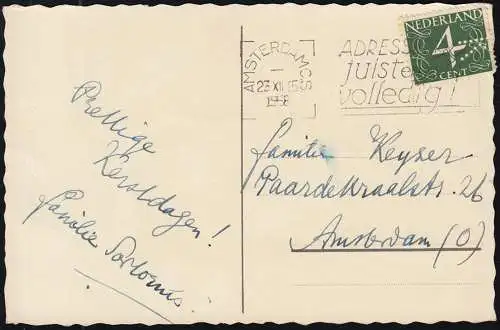 Prettige
Kerstdagen!
familie Sartorius
AMSTERDAM CS
23 XII 15
1958
ADRESS
juiste
volledig!
NEDERLAND
4
CENT
familie Keyser
Paardekraalstr. 26
Amsterdam (O)